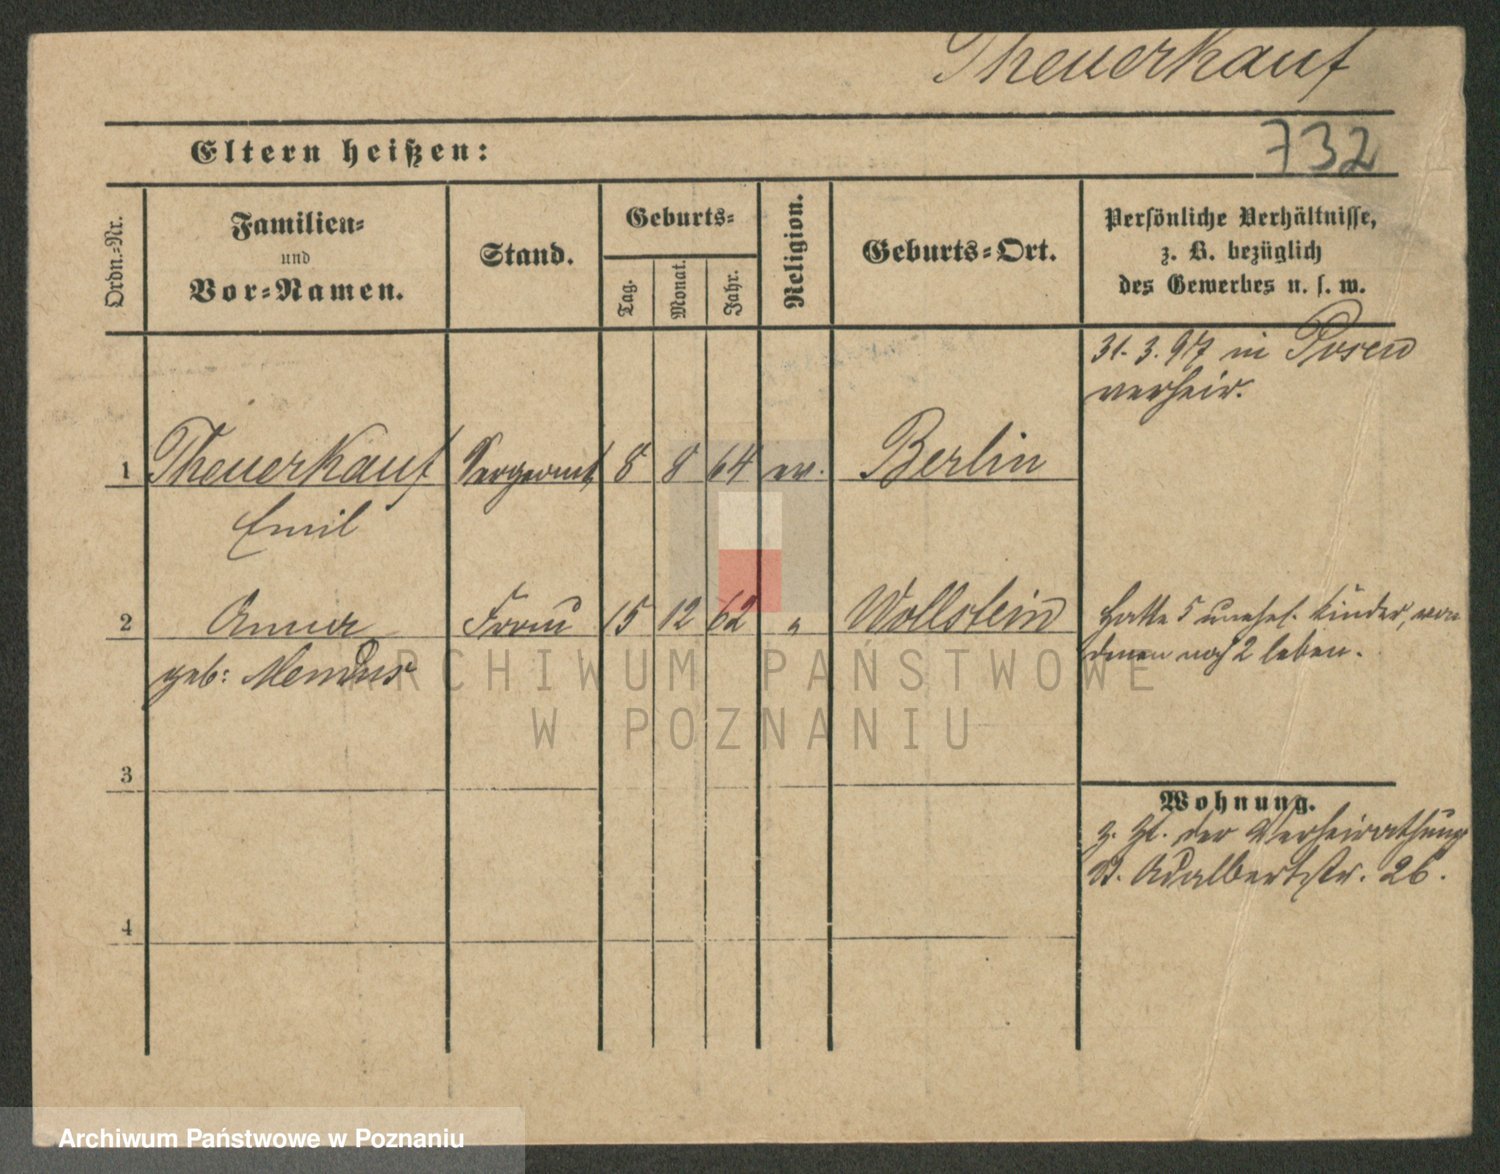 Theuerkauf
732
Eltern heißen:
Ordn.-Nr.
Familien-
und
Vor-Namen.
Stand.
Geburts-
Tag.
Monat.
Jahr.
Religion.
Geburts-Ort.
Persönliche Verhältnisse,
z. B. bezüglich
des Gewerbes u. s. w.
31. 3. 97 in Posen
verheir.
1 Theuerkauf Sergeant 8 8 64 ev. Berlin
Emil
2 Anna Frau 15 12 62 " Wollstein
geb: Mendus
Hatte 5 unehel. Kinder, von
denen noch 2 leben.
3
Wohnung.
z. Zt. der Verheirathung
St. Adalbertstr. 26.
4
ARCHIWUM PAŃSTWOWE
W POZNANIU
Archiwum Państwowe w Poznaniu